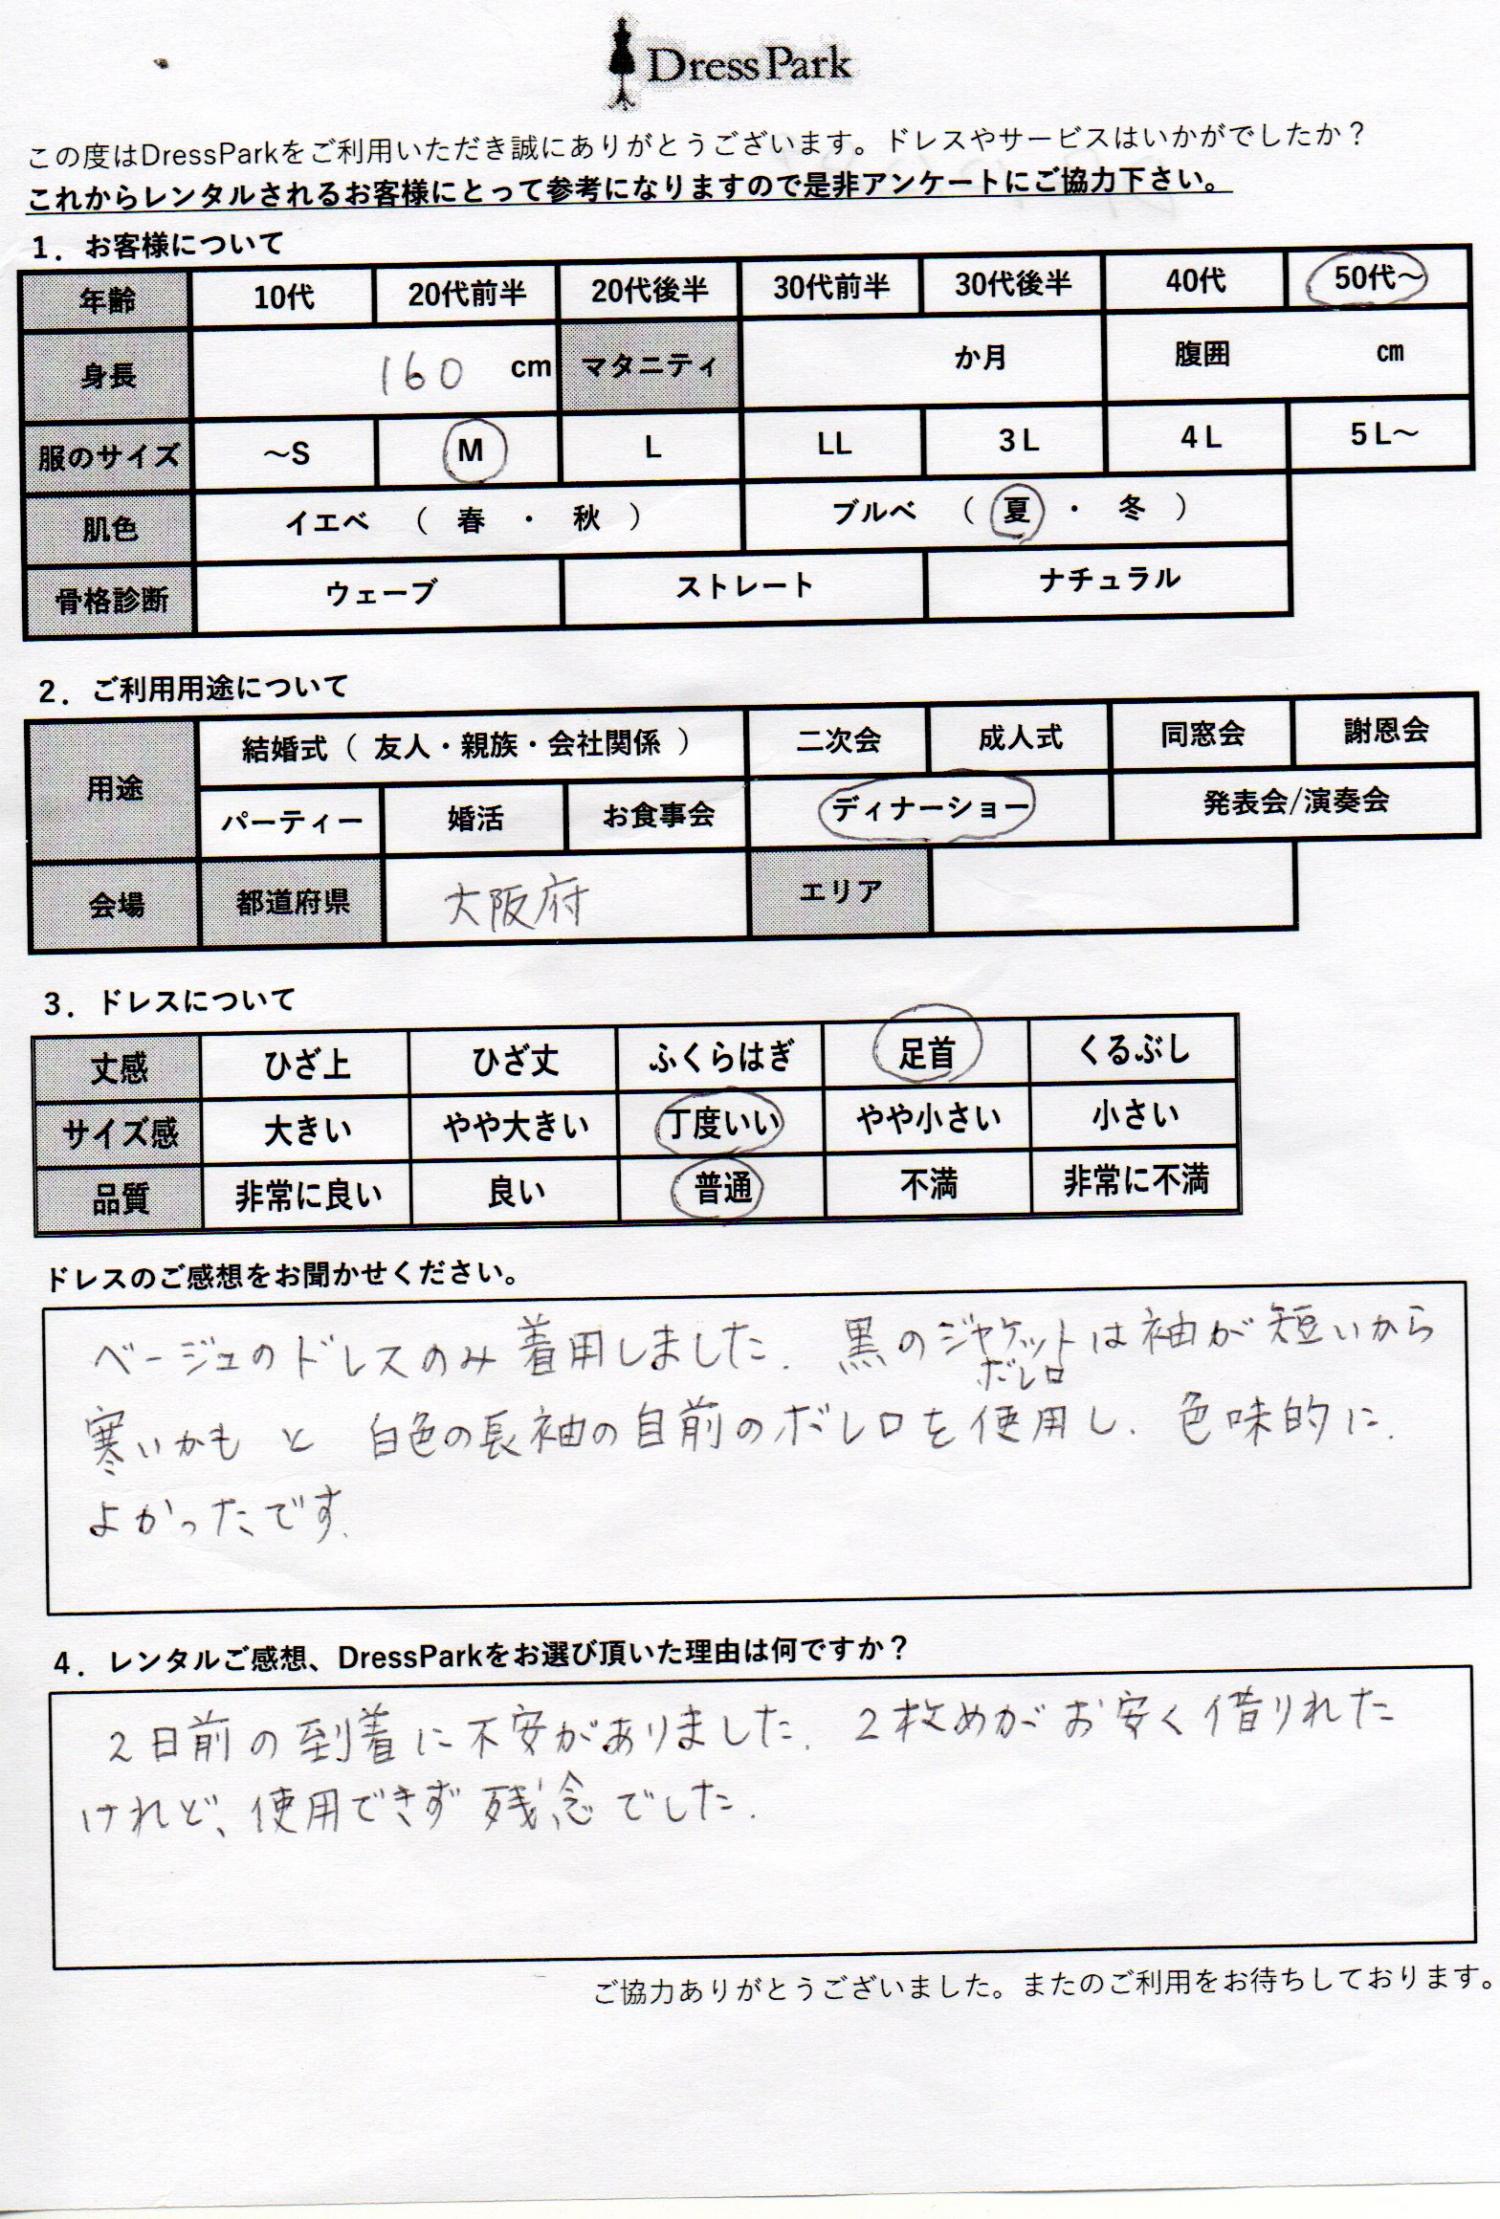 DressPark
この度はDressParkをご利用いただき誠にありがとうございます。ドレスやサービスはいかがでしたか？
これからレンタルされるお客様にとって参考になりますので是非アンケートにご協力下さい。
1．お客様について
年齢 10代 20代前半 20代後半 30代前半 30代後半 40代 50代～
身長 160 cm マタニティ か月 腹囲 cm
服のサイズ ～S M L LL 3L 4L 5L～
肌色 イエベ （ 春 ・ 秋 ） ブルベ （ 夏 ・ 冬 ）
骨格診断 ウェーブ ストレート ナチュラル
2．ご利用用途について
用途 結婚式（ 友人・親族・会社関係 ） 二次会 成人式 同窓会 謝恩会
パーティー 婚活 お食事会 ディナーショー 発表会/演奏会
会場 都道府県 大阪府 エリア
3．ドレスについて
丈感 ひざ上 ひざ丈 ふくらはぎ 足首 くるぶし
サイズ感 大きい やや大きい 丁度いい やや小さい 小さい
品質 非常に良い 良い 普通 不満 非常に不満
ドレスのご感想をお聞かせください。
ベージュのドレスのみ着用しました. 黒のジャケットは袖が短いから
ボレロ
寒いかもと 白色の長袖の自前のボレロを使用し. 色味的に.
よかったです.
4．レンタルご感想、DressParkをお選び頂いた理由は何ですか？
2日前の到着に不安がありました. 2枚めがお安く借りれた
けれど、使用できず残念でした.
ご協力ありがとうございました。またのご利用をお待ちしております。